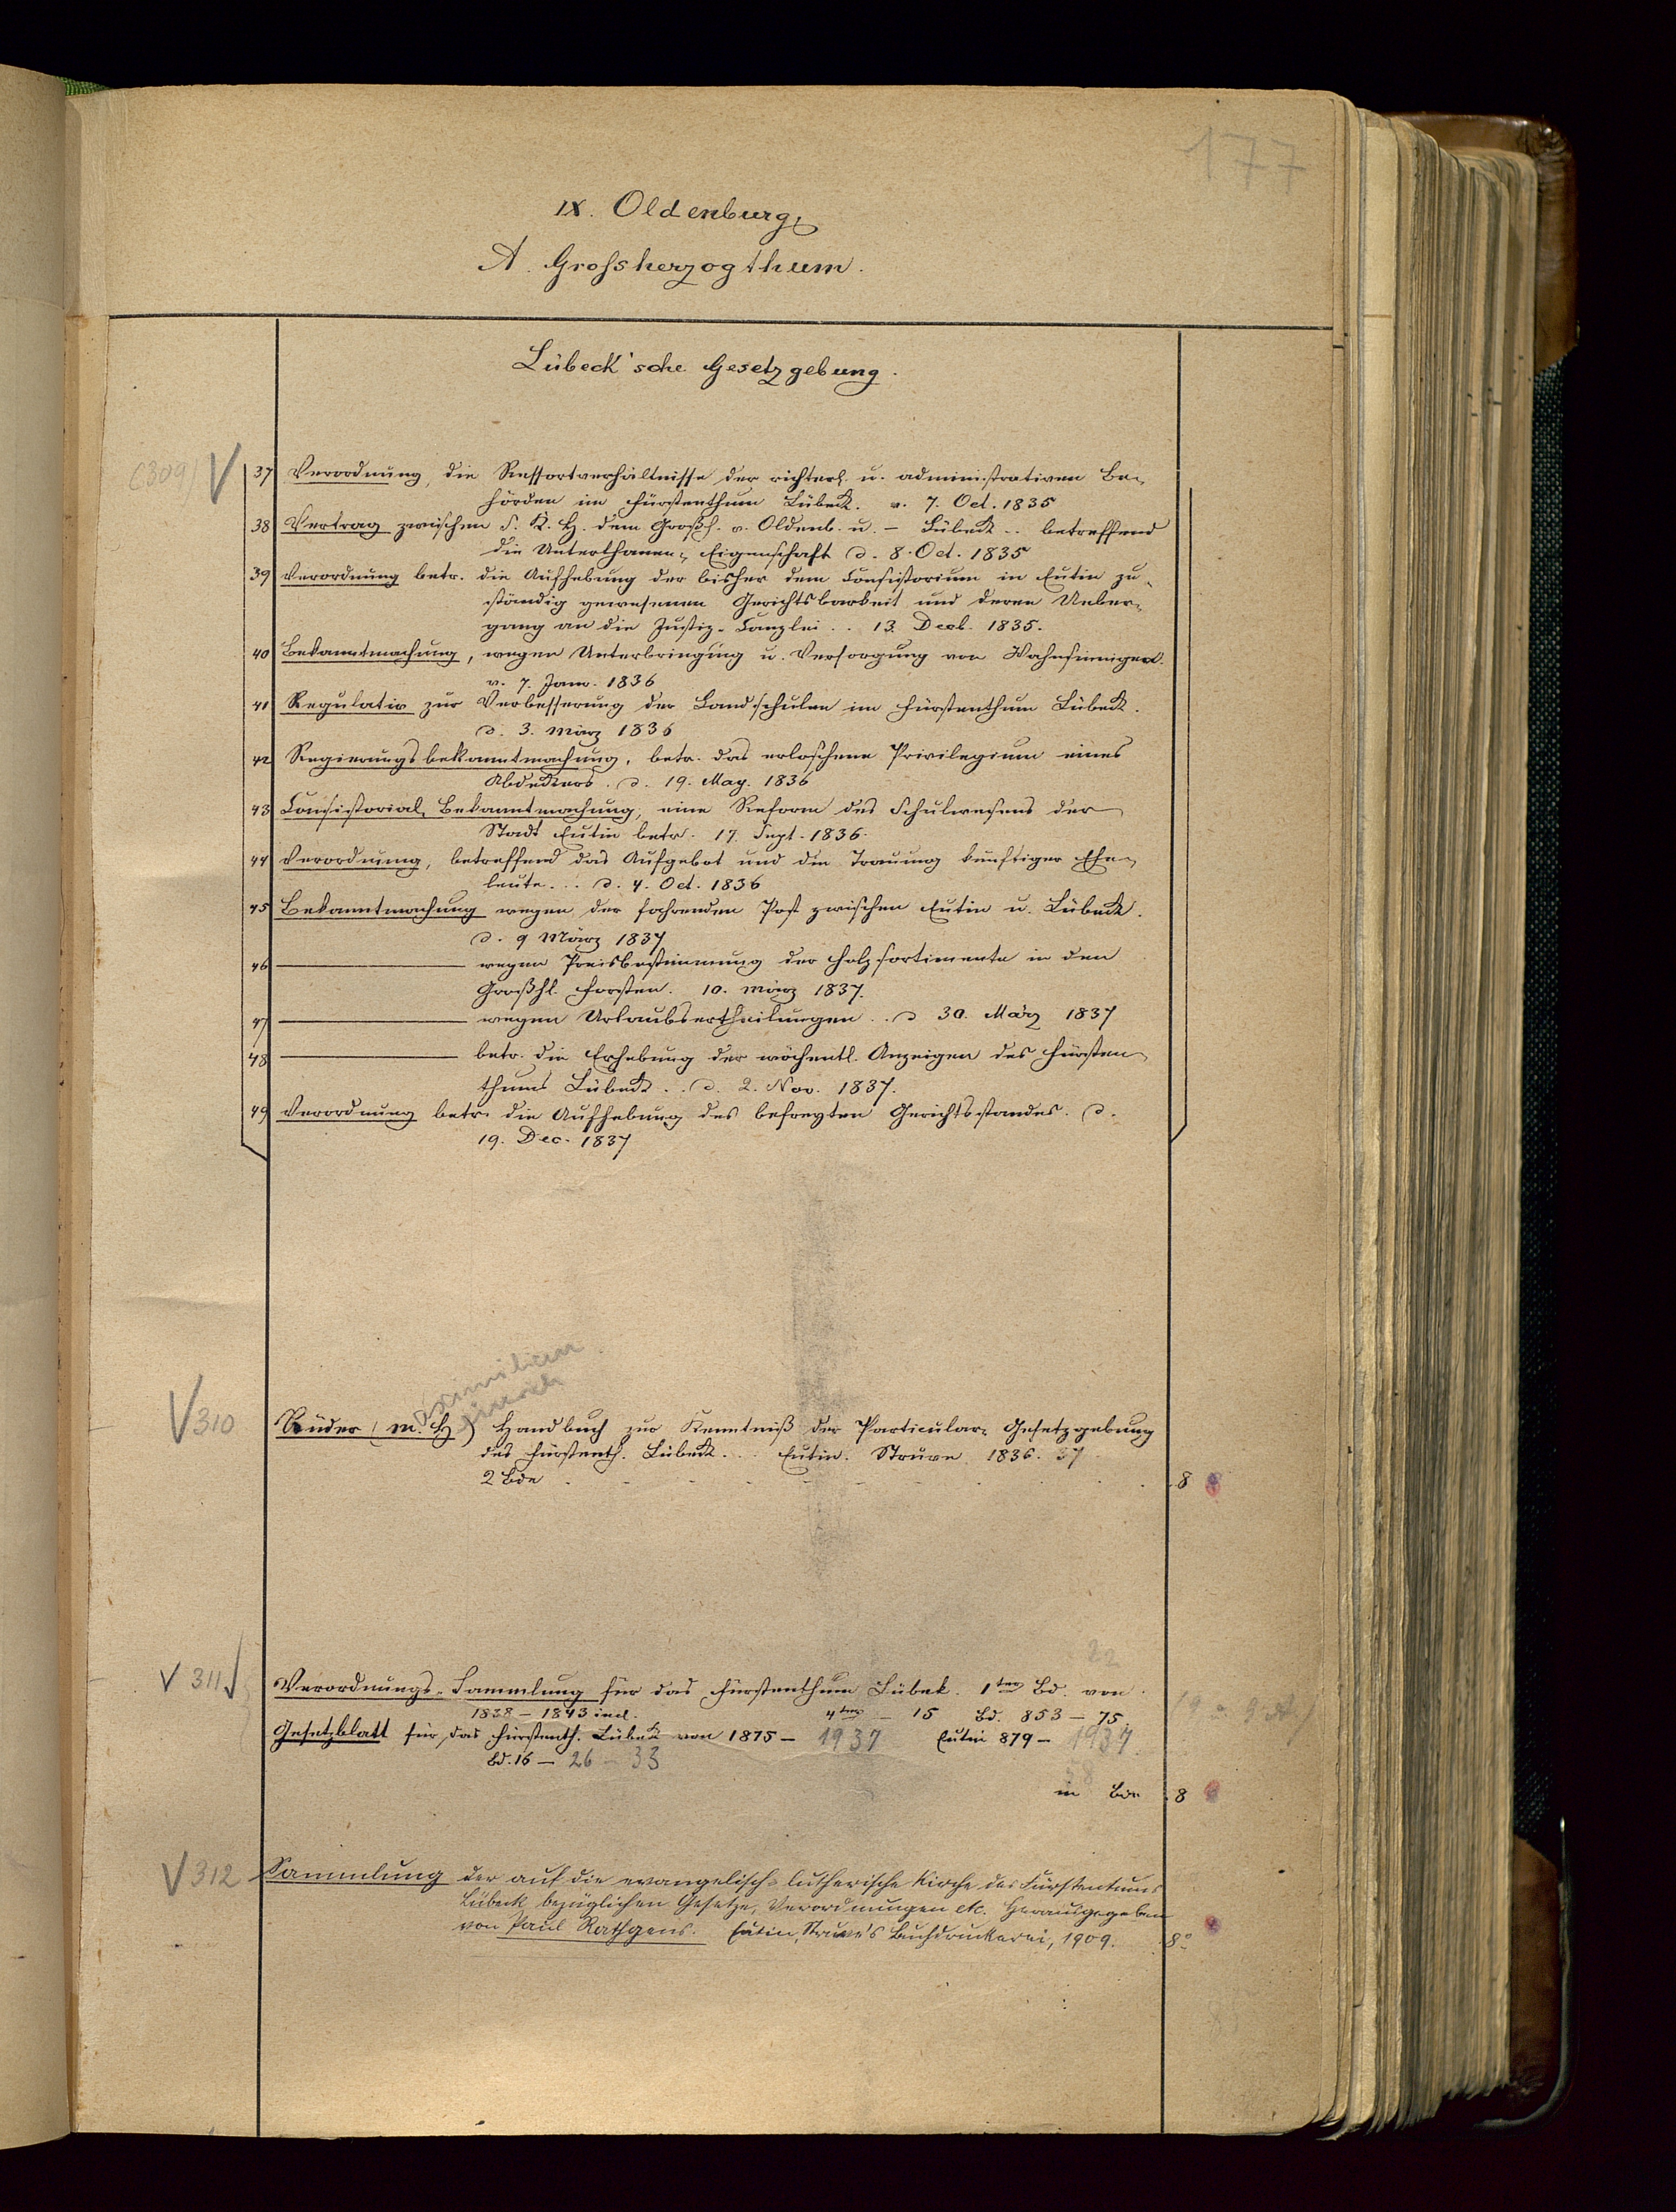 177
IX. Oldenburg,
A. Grossherzogthum.
Lübeck'sche Gesetzgebung.
(309) V 37 Verordnung, die Ressortverhältnisse der richterl. u. administrativen Be-
hörden im Fürstenthum Lübeck. v. 7. Oct. 1835
38 Vertrag zwischen S. K. H. dem Großh. v. Oldenb. u. – Lübeck .. betreffend
die Unterthanen-Eigenschaft d. 8. Oct. 1835
39 Verordnung betr. die Aufhebung der bisher dem Consistorium in Eutin zu-
ständig gewesenen Gerichtsbarkeit und deren Ueber-
gang an die Justiz-Canzlei .. 13. Decb. 1835.
40 Bekanntmachung, wegen Unterbringung u. Versorgung von Wahnsinnigen.
v. 7. Jan. 1836
41 Regulativ zur Verbesserung der Landschulen im Fürstenthum Lübeck.
d. 3. März 1836
42 Regierungsbekanntmachung, betr. das erloschene Privilegium eines
Abdeckers. d. 19. May. 1836
43 Consistorial-Bekanntmachung, eine Reform des Schulwesens der
Stadt Eutin betr. 17. Sept. 1836.
44 Verordnung, betreffend das Aufgebot und die Trauung künftiger Ehe-
leute... d. 4. Oct. 1836
45 Bekanntmachung wegen der fahrenden Post zwischen Eutin u. Lübeck.
d. 9 März 1837
46 ——— wegen Preisbestimmung der Holzsortimente in den
Großhl. Forsten. 10. März 1837.
47 ——— wegen Urlaubsertheilungen .. d 30. März 1837
48 ——— betr. die Erhebung der wöchentl. Anzeigen des Fürsten-
thums Lübeck .. d. 2. Nov. 1837.
49 Verordnung betr. die Aufhebung des befreyten Gerichtsstandes. d.
19. Dec. 1837
aximilian
inrich
V 310 Rüder (M. H) Handbuch zur Kenntniß der Particular-Gesetzgebung
des Fürstenth. Lübeck... Eutin. Struve 1836. 37
2 Bde 8
22
V 311 Verordnungs-Sammlung für das Fürstenthum Lübek. 1ter Bd. von
1838 – 1843 incl. 4ter – 15 Bd. 853 – 75.
Gesetzblatt für das Fürstenth. Lübeck von 1875 – 1937 Eutin 879 – 1937
Bd. 16 – 26 – 33
in Bde 8
V 312 Sammlung der auf die evangelisch-lutherische Kirche des Fürstentums
Lübeck bezüglichen Gesetze, Verordnungen etc. Herausgegeben
von Paul Rathgens. Eutin, Struve's Buchdruckerei, 1909. 8°